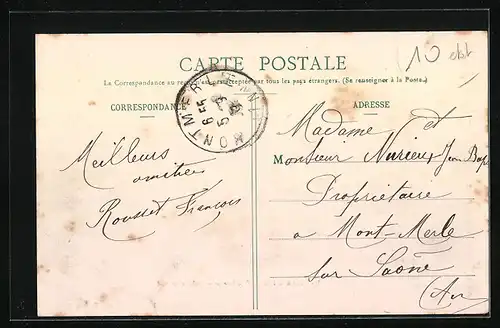 10
CARTE POSTALE
La Correspondance au recto n'est pas acceptée par tous les pays étrangers. (Se renseigner à la Poste.)
CORRESPONDANCE
ADRESSE
MONTMERLE
6 55
5 -3
Meilleurs
amitiés
Rousset François
Madame et
Monsieur Nurieux Jean Bap
Propriétaire
a Mont-Merle
sur Saône
(Ain